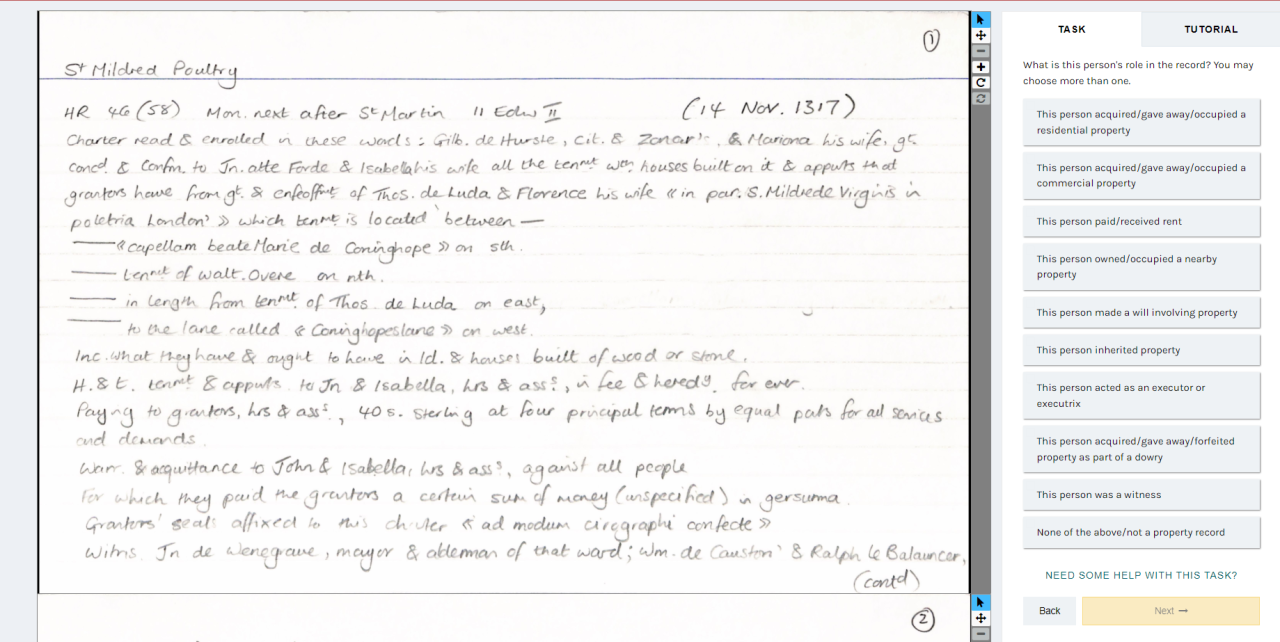 ①
St Mildred Poultry
HR 46 (58) Mon. next after St Martin 11 Edw II (14 Nov. 1317)
Charter read & enrolled in these words: Gilb. de Hurste, cit. & Zonar', & Mariona his wife, gt.
concd & confm. to Jn. atte Forde & Isabella his wife all the tenmt wth houses built on it & appurts that
grantors have from gt. & enfeoffmt of Thos. de Luda & Florence his wife « in par. S. Mildrede Virginis in
poletria London' » which tenmt is located between —
— « capellam beate Marie de Coninghope » on sth.
— tenmt of Walt. Overe on nth.
— in length from tenmt. of Thos. de Luda on east,
— to the lane called « Coninghopeslane » on west.
Inc. what they have & ought to have in ld. & houses built of wood or stone.
H. & t. tenmt & appurts. to Jn & Isabella, hrs & asss, in fee & heredy. for ever.
Payng to grantors, hrs & asss, 40s. sterling at four principal terms by equal parts for all services
and demands.
Warr. & acquittance to John & Isabella, hrs & asss, against all people
For which they paid the grantors a certain sum of money (unspecified) in gersuma.
Grantors' seals affixed to this charter « ad modum cirographi confecte »
Witns. Jn de Wenegrave, mayor & alderman of that ward; Wm. de Causton' & Ralph le Balauncer,
(contd)
②
TASK
TUTORIAL
What is this person's role in the record? You may
choose more than one.
This person acquired/gave away/occupied a
residential property
This person acquired/gave away/occupied a
commercial property
This person paid/received rent
This person owned/occupied a nearby
property
This person made a will involving property
This person inherited property
This person acted as an executor or
executrix
This person acquired/gave away/forfeited
property as part of a dowry
This person was a witness
None of the above/not a property record
NEED SOME HELP WITH THIS TASK?
Back
Next →